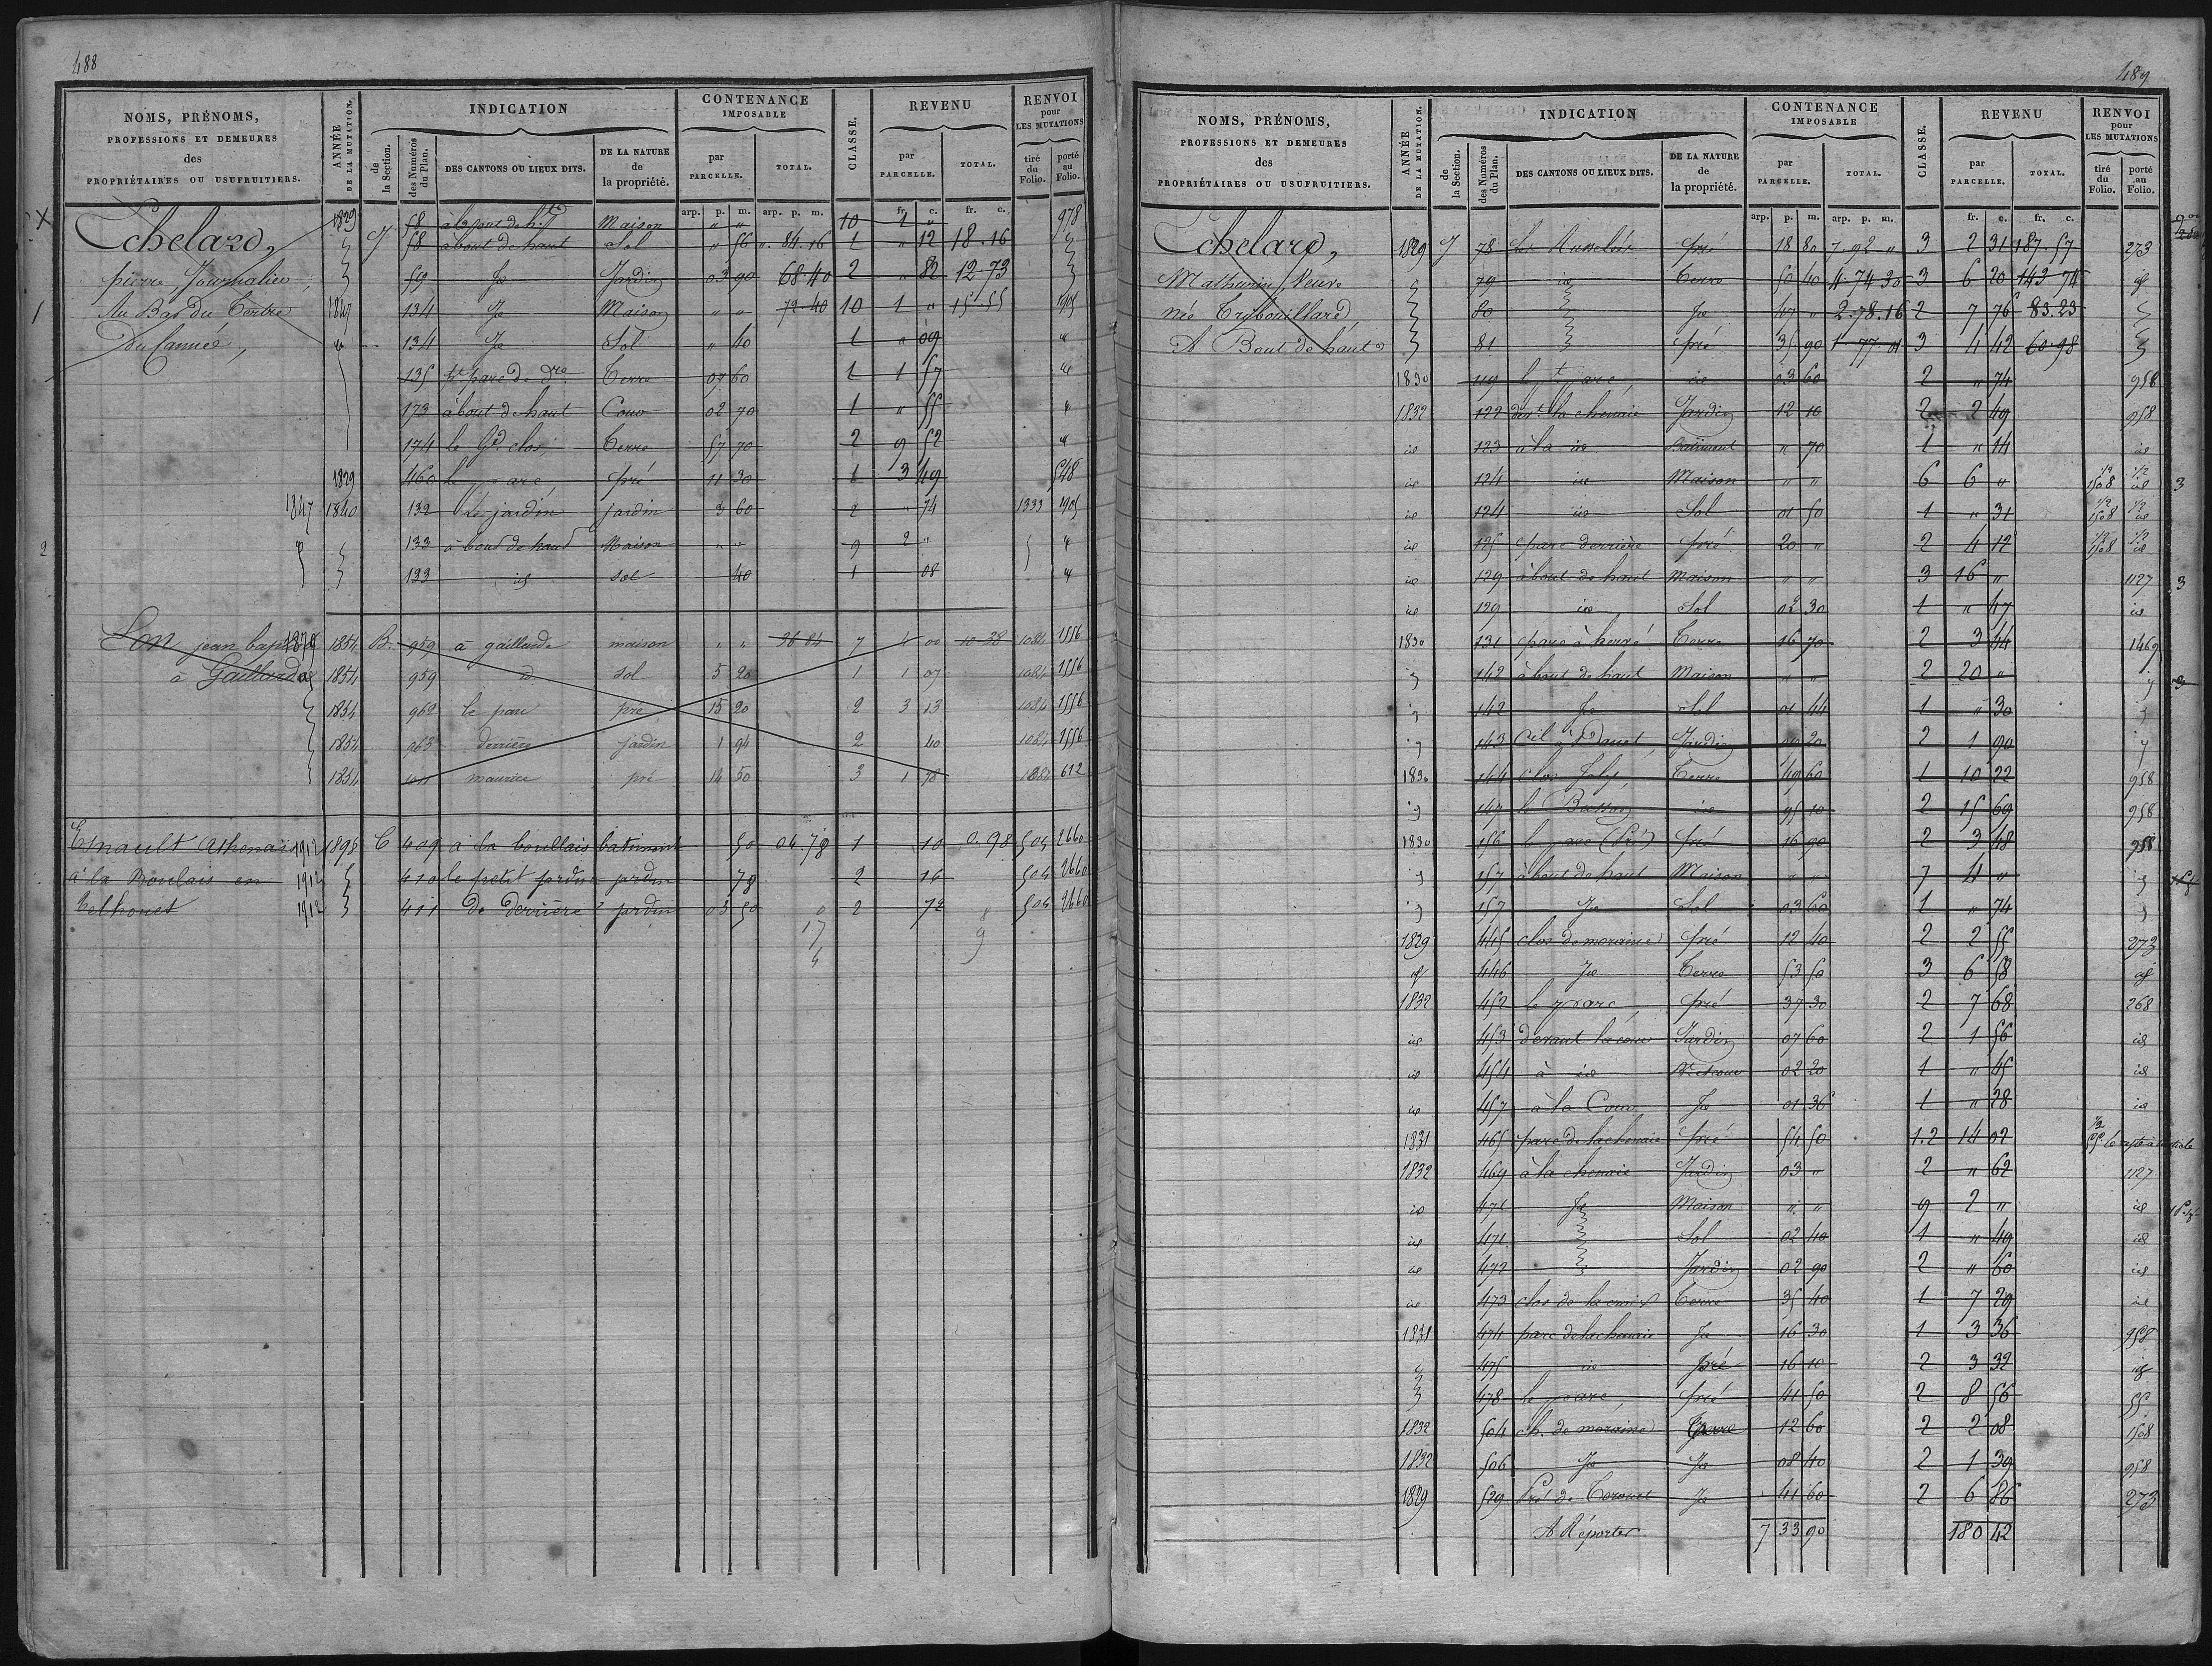 488
NOMS, PRÉNOMS, PROFESSIONS ET DEMEURES des PROPRIÉTAIRES OU USUFRUITIERS.
ANNÉE DE LA MUTATION.
INDICATION
de la Section.
des Numéros du Plan.
DES CANTONS OU LIEUX DITS.
DE LA NATURE de la propriété.
CONTENANCE IMPOSABLE
par PARCELLE.
TOTAL.
CLASSE.
REVENU
par PARCELLE.
TOTAL.
RENVOI pour LES MUTATIONS
tiré du Folio.
porté au Folio.
arp. p. m. arp. p. m. fr. c. fr. c.
X Echelard, 1829 J 58 Maison " " 10 1 " 978
58 à bout de haut Sol " 56 ". 84. 16 1 " 12 18. 16
pierre, Journalier, 59 Je Jardin 03 90 68 40 2 " 82 12 73
1 Au Bas du Tertre 1847 134 Je Maison " " 72 40 10 1 " 15 55 1905
Du Canneé, 134 Je Sol " 40 1 " 09
135 pt parc de dre Terre 07 60 1 1 57
173 à bout de haut Cour 02 70 1 " 55
174 le Gd clos Terre 57 70 2 9 52
1829 460 Le parc, pré 11 30 1 3 49 548
1847 1840 132 Le jardin jardin 3 60 2 " 74 1333 1905
2 133 à bout de haut Maison " " 9 2 "
133 id sol 40 1 08
Lon jean baptiste 1879 1854 B. 959 à gaillarde maison " " 36 84 7 4 00 10 28 1084 1556
à Gaillarde 1854 959 d sol 5 20 1 1 07 1084 1556
1854 962 le parc pré 15 20 2 3 13 1084 1556
1854 963 derrière jardin 1 94 2 40 1084 1556
1854 maurice pré 14 50 3 1 78 1084 612
Esnault Athenais 1912 1895 C 409 à la boullais batiment 50 04 78 1 10 0. 98 504 2660
à la Boulais en 1912 410 le petit jardin jardin 78 2 16 504 2660
Telhouet 1912 411 de derrière jardin 03 50 0 2 72 8 504 2660
17 9
4
489
NOMS, PRÉNOMS, PROFESSIONS ET DEMEURES des PROPRIÉTAIRES OU USUFRUITIERS.
ANNÉE DE LA MUTATION.
INDICATION
de la Section.
des Numéros du Plan.
DES CANTONS OU LIEUX DITS.
DE LA NATURE de la propriété.
CONTENANCE IMPOSABLE
par PARCELLE.
TOTAL.
CLASSE.
REVENU
par PARCELLE.
TOTAL.
RENVOI pour LES MUTATIONS
tiré du Folio.
porté au Folio.
arp. p. m. arp. p. m. fr. c. fr. c.
Echelard, 1829 J 78 pré 18 80 7. 92 " 3 2 31 187. 57 273
Mathurin Veuve 79 id Terre 50 40 4 74 30 3 6 20 143 74 id
née Trybouillard 80 Je 47 " 2. 78. 16 2 7 76 83. 23
A Bout de haut 81 pré 35 90 1 77 01 3 4 42 60. 98
1830 119 le pt parc id 03 60 2 " 74 958
1832 122 devt la chenaie Jardin 12 10 2 2 49 958
id 123 à la id Batiment " 70 1 " 14 id
id 124 id Maison " " 6 6 " 1/2 1508 1/2 id 3
id 124 id Sol 01 50 1 " 31 1/2 1508 1/2 id
id 125 parc derrière pré 20 " 2 4 12 1/2 1508 1/2 id
id 129 à bout de haut Maison " " 3 16 " 1127 3
id 129 id Sol 02 30 1 " 47 id
1830 131 parc à hervé Terre 16 70 2 3 44 1469
142 à bout de haut Maison " " 2 20 "
142 Je Sol 01 44 1 " 30
143 Jardin 09 20 2 1 90
1830 144 clos Terre 49 60 1 10 22 958
147 le Buisson id 95 10 2 15 69 958
1830 156 le parc (Pré) pré 16 90 2 3 48 958
157 à bout de haut Maison " " 7 4 "
157 Je Sol 03 60 1 " 74
1829 445 clos de moraine pré 12 40 2 2 55 273
id 446 Je Terre 53 50 3 6 58 id
1832 452 le parc pré 37 30 2 7 68 268
id 453 devant la cour Jardin 07 60 2 1 56 id
id 454 à id 02 20 1 " 45 id
id 457 à la Cour Je 01 36 1 " 28 id
1831 465 parc de la chenaie pré 54 50 1.2 14 02
1832 469 à la chenaie Jardin 03 " 2 " 62 1127
id 471 Je Maison " " 9 2 " id
id 471 Sol 02 40 1 " 49 id
id 472 Jardin 02 90 2 " 60 id
id 473 clos de la croix Terre 35 40 1 7 29 id
1831 474 parc de la chenaie Je 16 30 1 3 36 958
475 id pré 16 10 2 3 32 id
478 le parc pré 41 50 2 8 56 55
1832 504 ch. de moraine Terre 12 60 2 2 08 1508
1832 506 Je Je 08 40 2 1 39 958
1829 529 Pré de Corouet Je 41 60 2 6 86 273
A Réporter 7 33 90 180 42